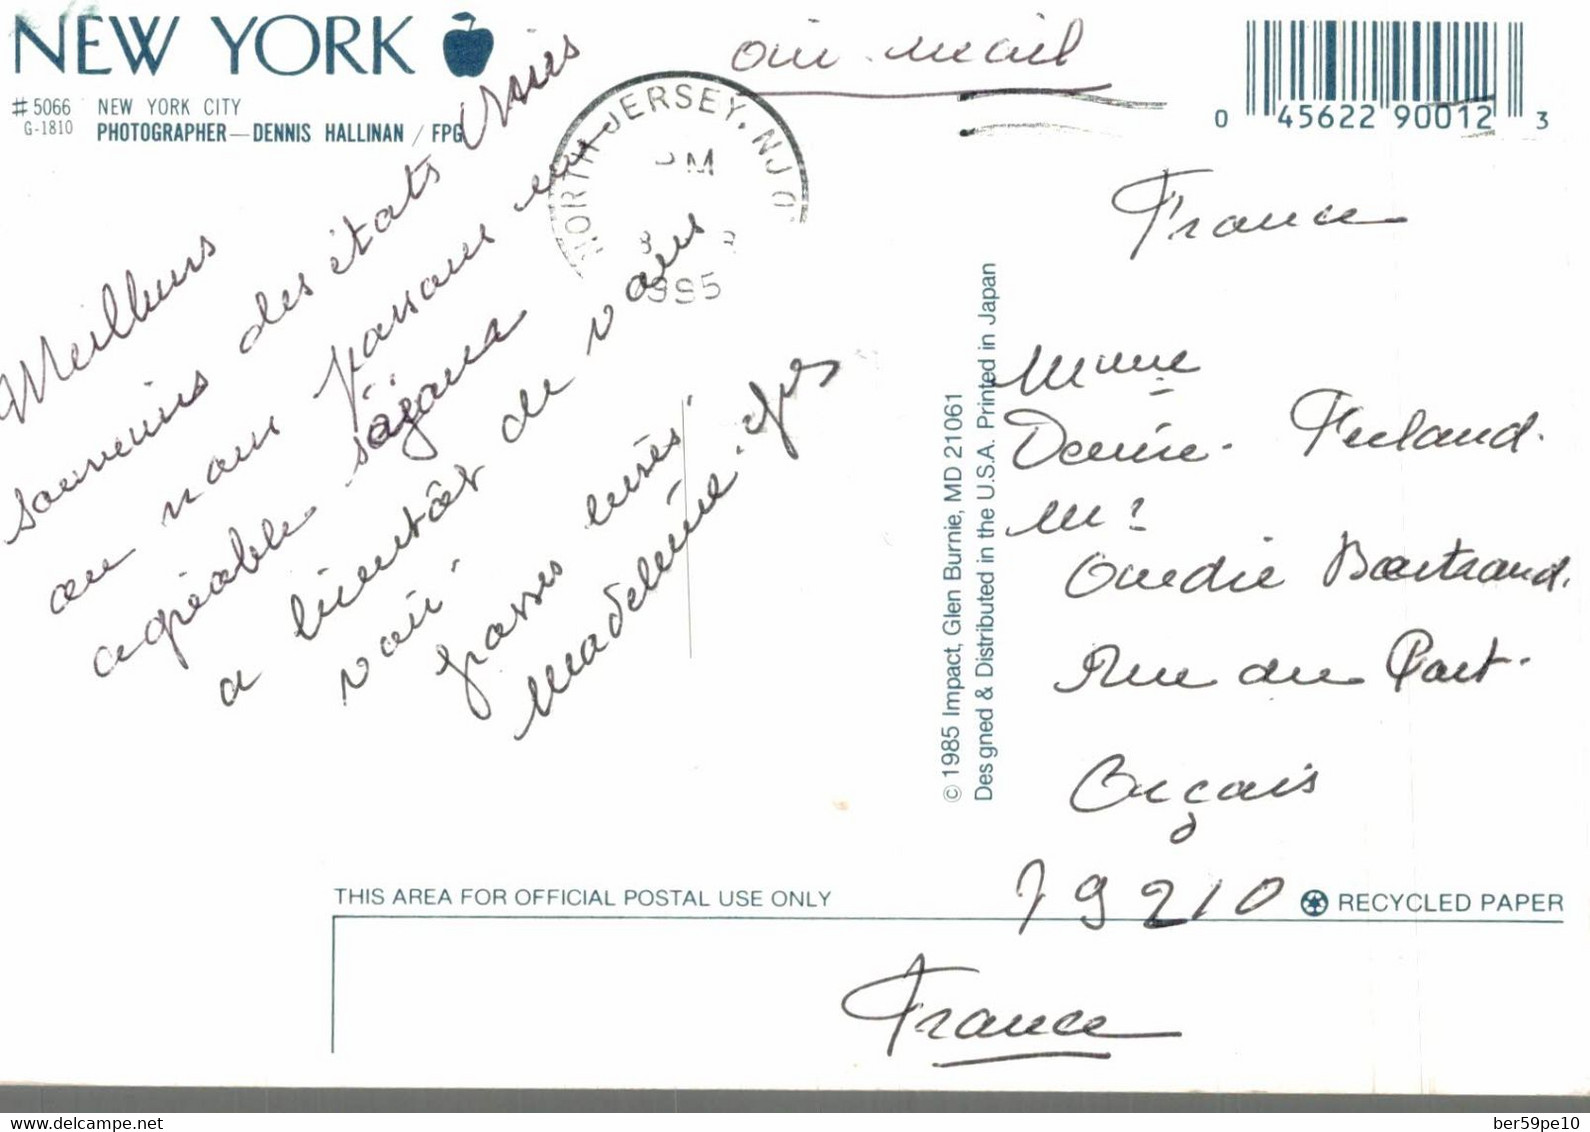 NEW YORK
# 5066 NEW YORK CITY
G-1810 PHOTOGRAPHER—DENNIS HALLINAN / FPG
air mail
NORTH JERSEY, NJ 0
PM
1995
0 45622 90012 3
Meilleurs
souvenirs des états Unis
ou nous passons un
agréable séjour
a bientôt de vous
voir
grosses bises
Madeleine
© 1985 Impact, Glen Burnie, MD 21061
Designed & Distributed in the U.S.A. Printed in Japan
France
Mme
Denise Ferland.
Mr
Bertrand.
Rue du Port.
Arçais
79210
France
THIS AREA FOR OFFICIAL POSTAL USE ONLY
RECYCLED PAPER
delcampe.net
ber59pe10